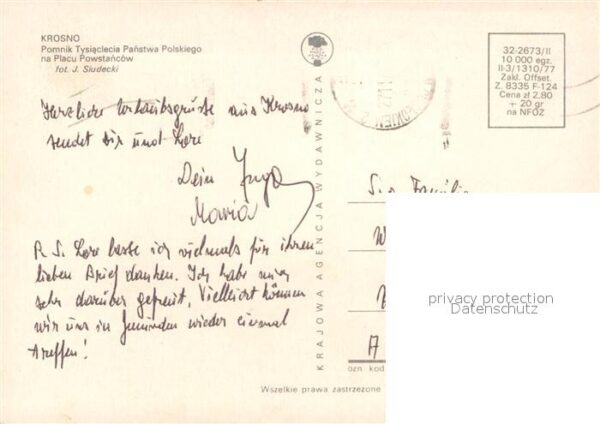 KROSNO
Pomnik Tysiąclecia Państwa Polskiego
na Placu Powstańców
fot. J. Siudecki
32-2673/II
10 000 egz.
II-3/1310/77
Zakl. Offset.
Z. 8335 F-124
Cena zł 2,80
+ 20 gr
na NFOZ
KRAJOWA AGENCJA WYDAWNICZA
Herzliche Urlaubsgrüße aus Krosno
sendet Dir und Lore
Dein
Maria
P.S. Lore lasse ich vielmals für ihren
lieben Brief danken. Ich habe mich
sehr darüber gefreut. Vielleicht können
wir uns in wieder einmal
treffen!
Familie
W
A
ozn kod
Wszelkie prawa zastrzeżone
privacy protection
Datenschutz